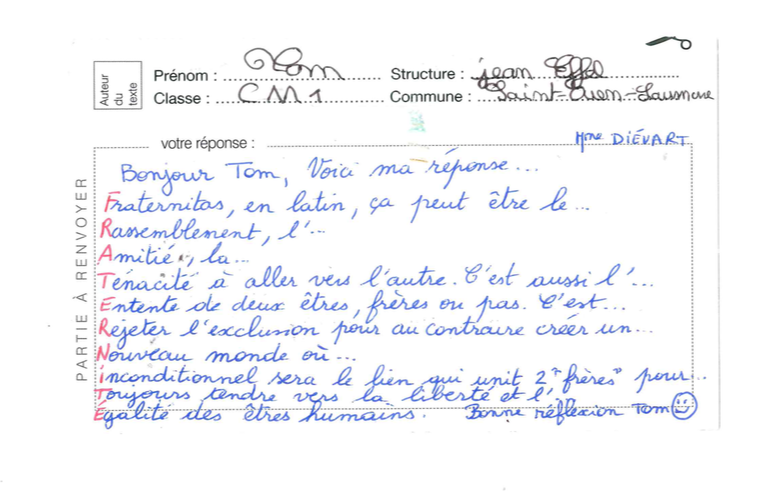 Auteur du texte
Prénom : Tom Structure : jean Effel
Classe : CM1 Commune : Saint-Ouen-L'aumône
votre réponse : Mme DIÉVART
Bonjour Tom, Voici ma réponse...
Fraternitas, en latin, ça peut être le...
Rassemblement, l'...
Amitié, la...
Ténacité à aller vers l'autre. C'est aussi l'...
Entente de deux êtres, frères ou pas. C'est...
Rejeter l'exclusion pour au contraire créer un...
Nouveau monde où...
inconditionnel sera le lien qui unit 2 "frères" pour...
Toujours tendre vers la liberté et l'
Égalité des êtres humains. Bonne réflexion Tom
PARTIE À RENVOYER